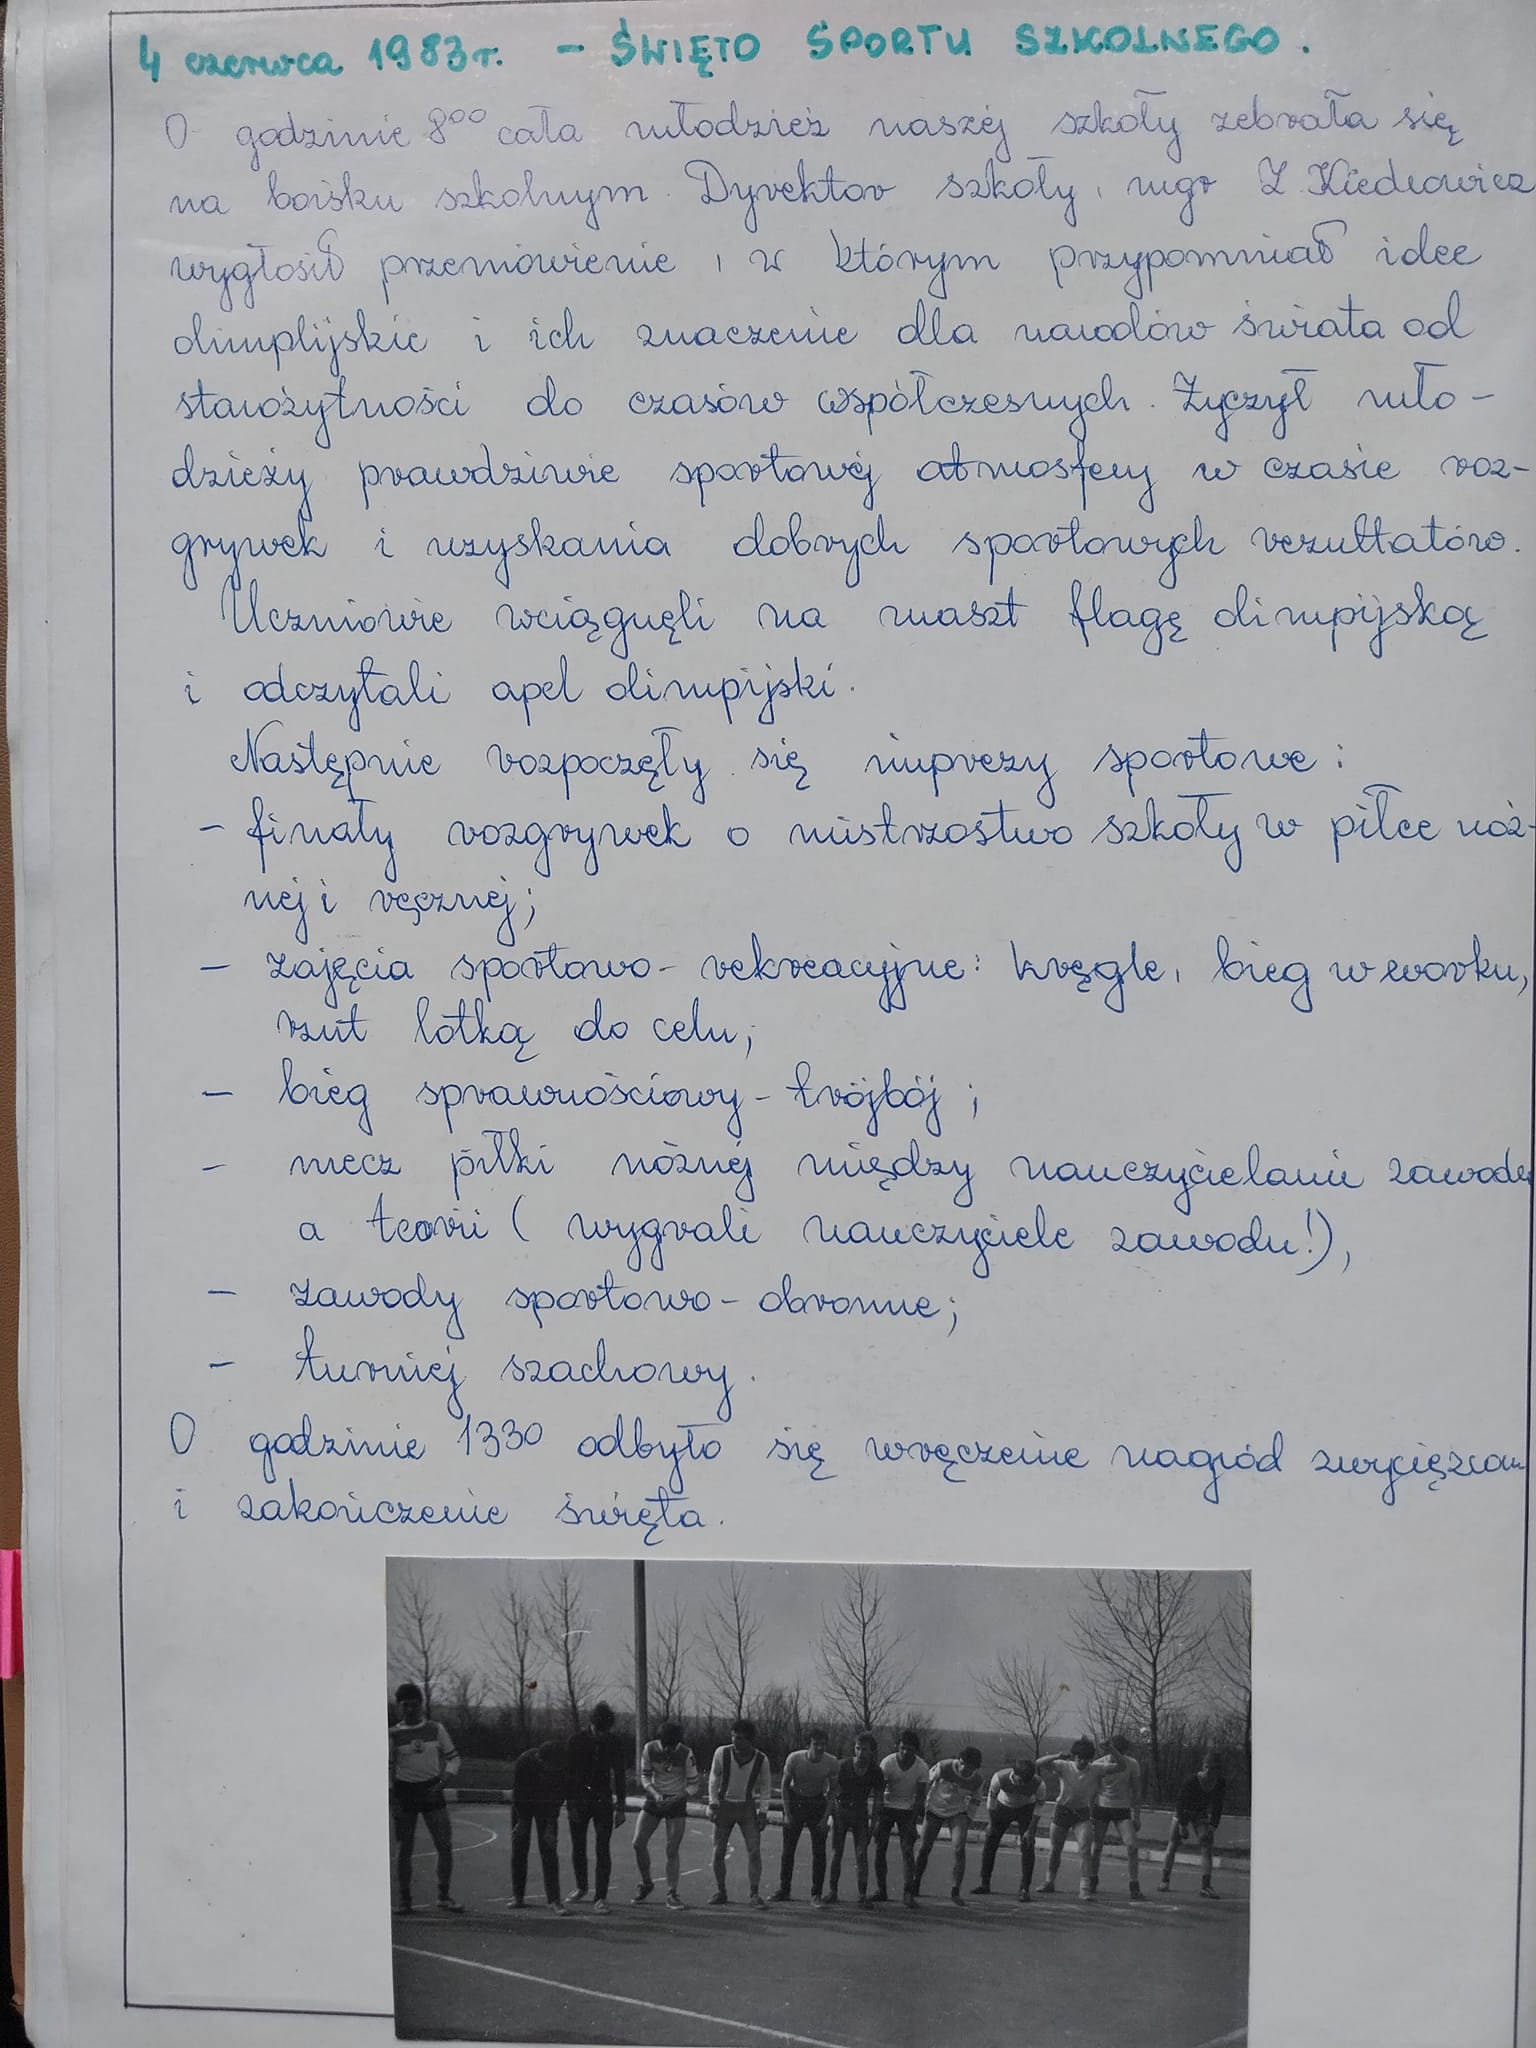 4 czerwca 1983r. - ŚWIĘTO SPORTU SZKOLNEGO.
O godzinie 8⁰⁰ cała młodzież naszej szkoły zebrała się
na boisku szkolnym. Dyrektor szkoły, mgr Z. Kiedrowicz
wygłosił przemówienie, w którym przypomniał idee
olimplijskie i ich znaczenie dla narodów świata od
starożytności do czasów współczesnych. Życzył mło-
dzieży prawdziwie sportowej atmosfery w czasie roz-
grywek i uzyskania dobrych sportowych rezultatów.
Uczniowie wciągnęli na maszt flagę olimpijską
i odczytali apel olimpijski.
Następnie rozpoczęły się imprezy sportowe:
- finały rozgrywek o mistrzostwo szkoły w piłce noż-
nej i ręcznej;
- zajęcia sportowo-rekreacyjne: kręgle, bieg w worku,
rzut lotką do celu;
- bieg sprawnościowy - trójbój;
- mecz piłki nożnej między nauczycielami zawodu
a teorii (wygrali nauczyciele zawodu!),
- zawody sportowo-obronne;
- turniej szachowy.
O godzinie 13³⁰ odbyło się wręczenie nagród zwycięzcom
i zakończenie święta.